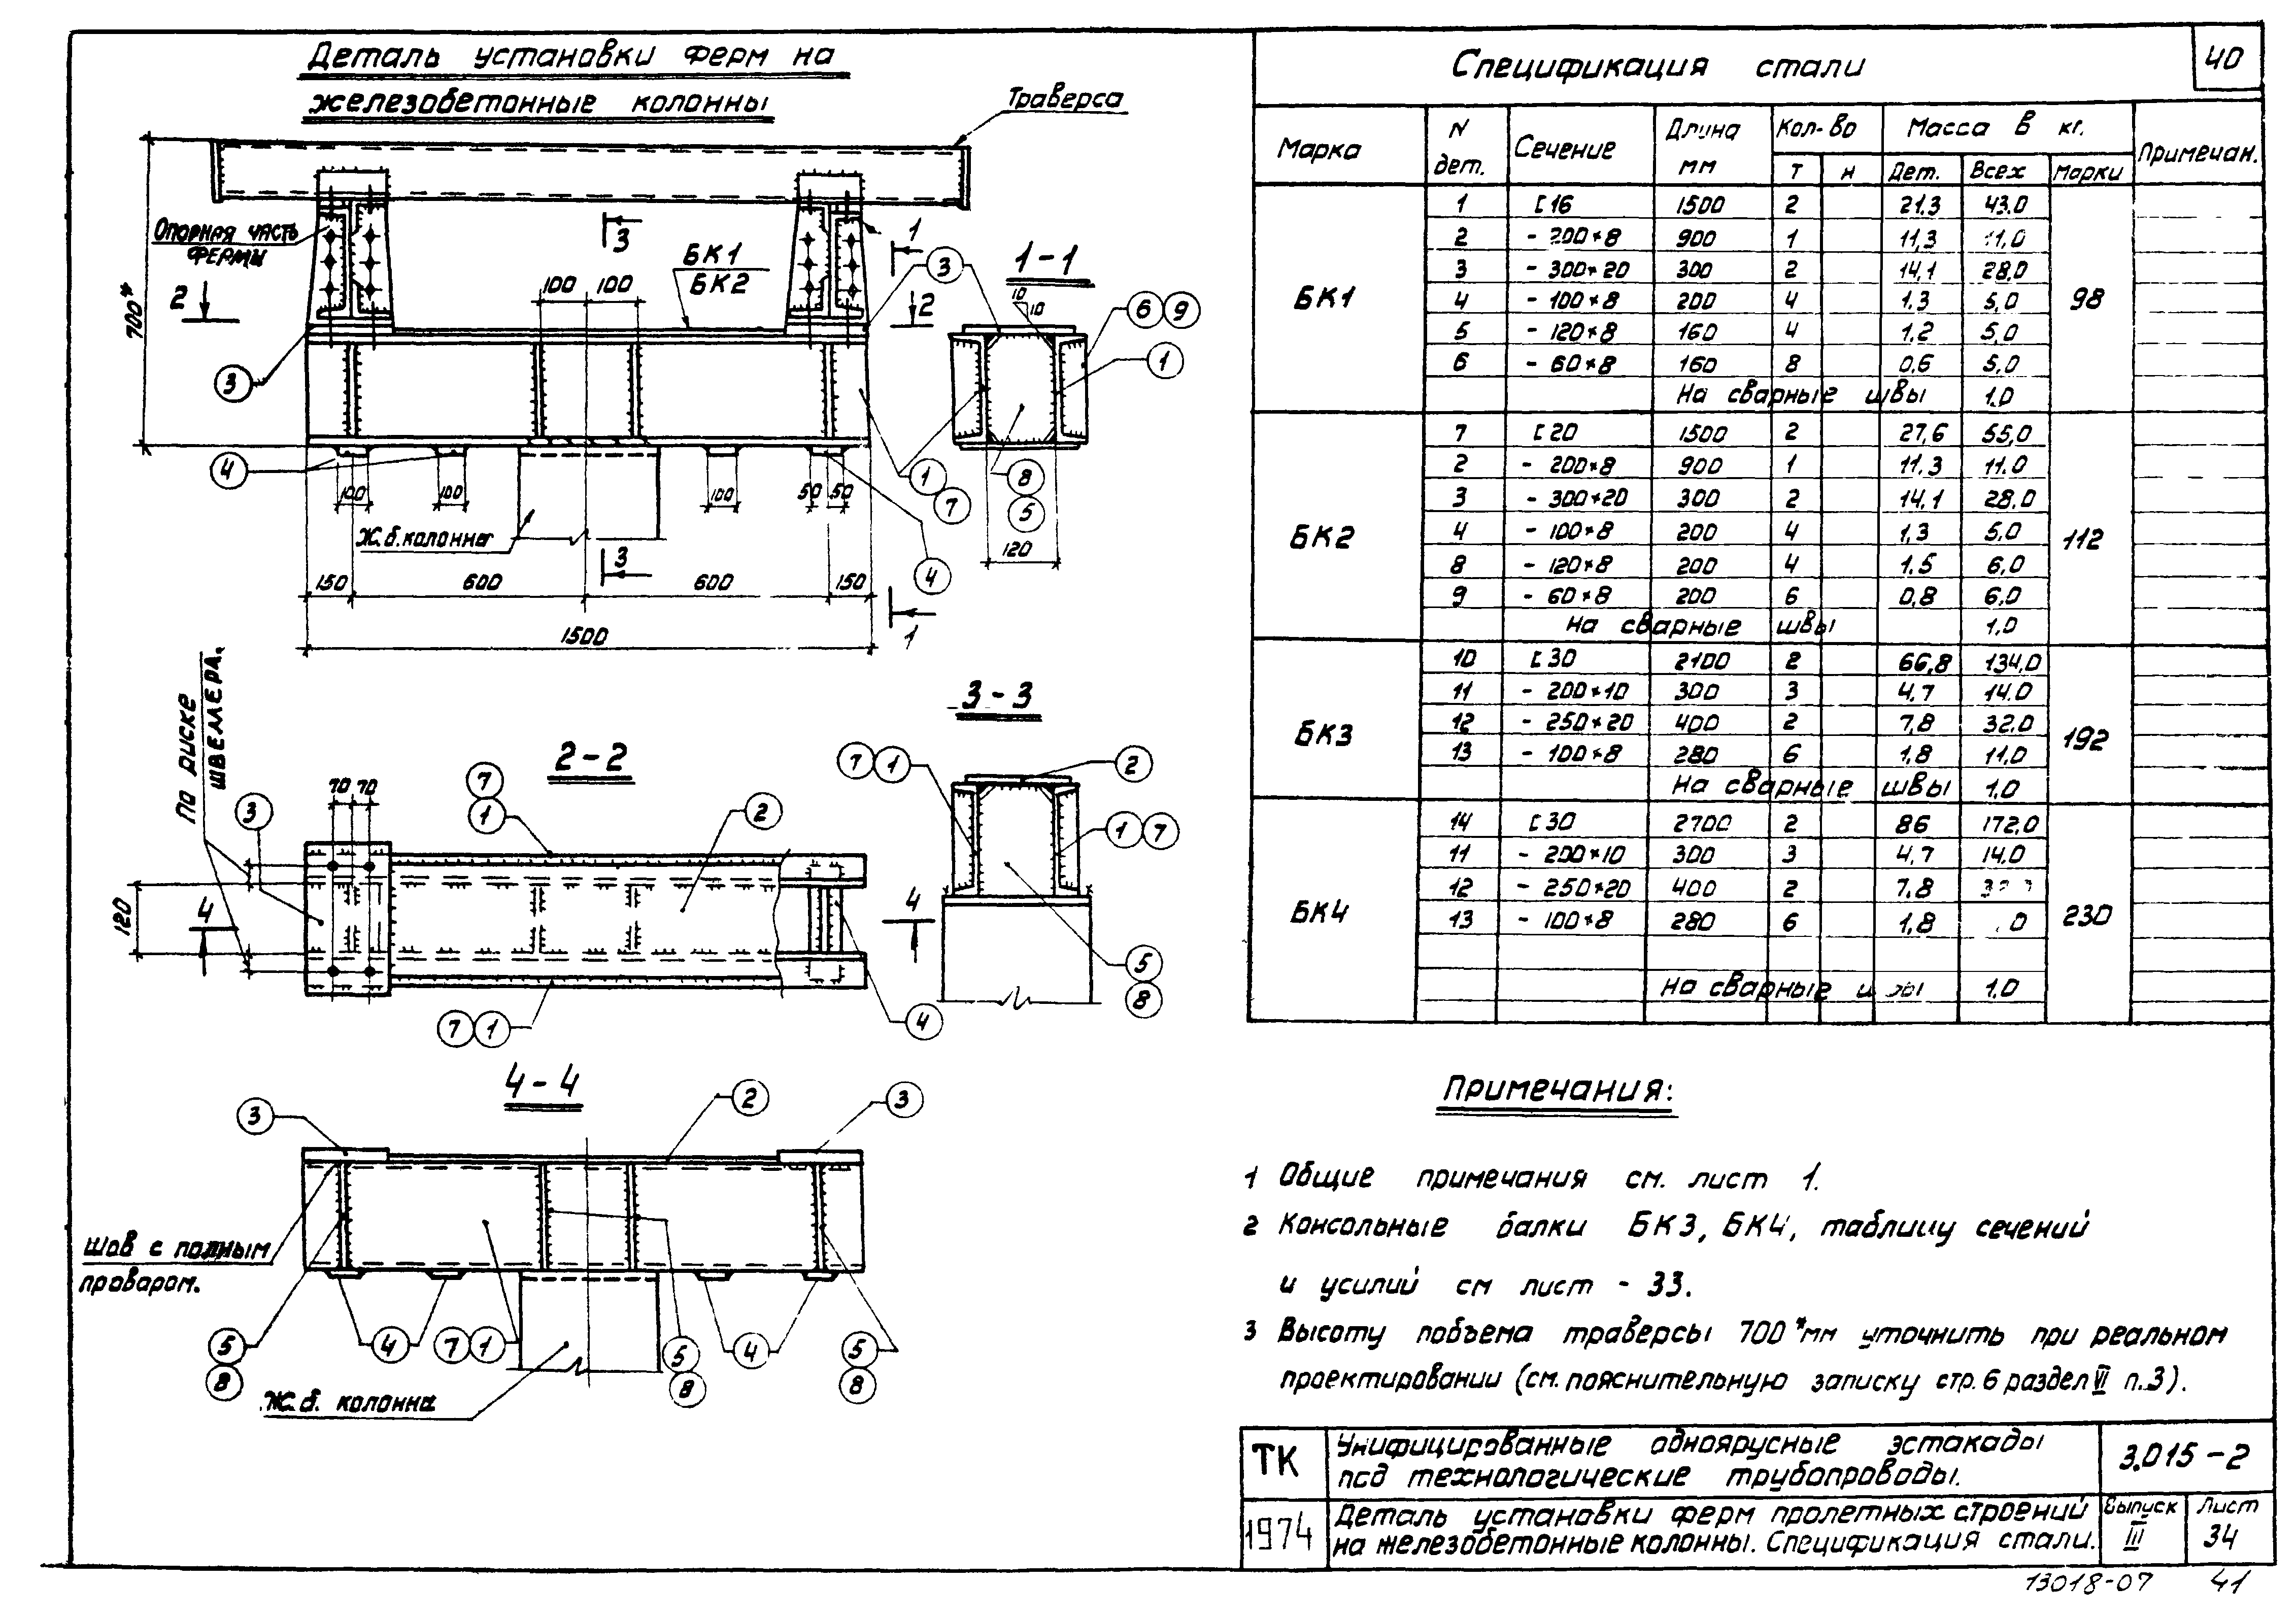 40
Деталь установки ферм на
железобетонные колонны
Траверса
Опорная часть
фермы
700*
2
3
1
БК1
БК2
100 100
3
2
3
4
100
100
100
50 50
1
7
4
Ж.б. колонна
3
150 600 600 150
1500
1
1-1
10
10
6 9
1
8
5
120
По риске
швеллера.
2-2
70 70
3
7
1
2
120
4
4
7 1
4
3-3
7 1
2
1 7
5
8
4-4
3
2
3
Шов с полным
проваром.
5
8
4
7 1
5
8
4
5
8
Ж.б. колонна
Спецификация стали
Марка N дет. Сечение Длина мм Кол-во Масса в кг. Примечан.
т н Дет. Всех Марки
БК1 98
1 [16 1500 2 21.3 43.0
2 - 200*8 900 1 11,3 11,0
3 - 300*20 300 2 14,1 28.0
4 - 100*8 200 4 1.3 5,0
5 - 120*8 160 4 1.2 5,0
6 - 60*8 160 8 0,6 5,0
На сварные швы 1.0
БК2 112
7 [20 1500 2 27,6 55,0
2 - 200*8 900 1 11.3 11.0
3 - 300*20 300 2 14,1 28.0
4 - 100*8 200 4 1,3 5,0
8 - 120*8 200 4 1.5 6,0
9 - 60*8 200 6 0,8 6,0
На сварные швы 1,0
БК3 192
10 [30 2100 2 66,8 134,0
11 - 200*10 300 3 4,7 14.0
12 - 250*20 400 2 7,8 32.0
13 - 100*8 280 6 1,8 11,0
На сварные швы 1.0
БК4 230
14 [30 2700 2 86 172,0
11 - 200*10 300 3 4,7 14.0
12 - 250*20 400 2 7.8
13 - 100*8 280 6 1,8
На сварные швы 1.0
Примечания:
1 Общие примечания см. лист 1.
2 Консольные балки БК3, БК4, таблицу сечений
и усилий см лист - 33.
3 Высоту подъема траверсы 700*мм уточнить при реальном
проектировании (см. пояснительную записку стр. 6 раздел VII п.3).
ТК Унифицированные одноярусные эстакады
под технологические трубопроводы. 3.015-2
1974 Деталь установки ферм пролетных строений
на железобетонные колонны. Спецификация стали.
Выпуск III
Лист 34
13018-07 41